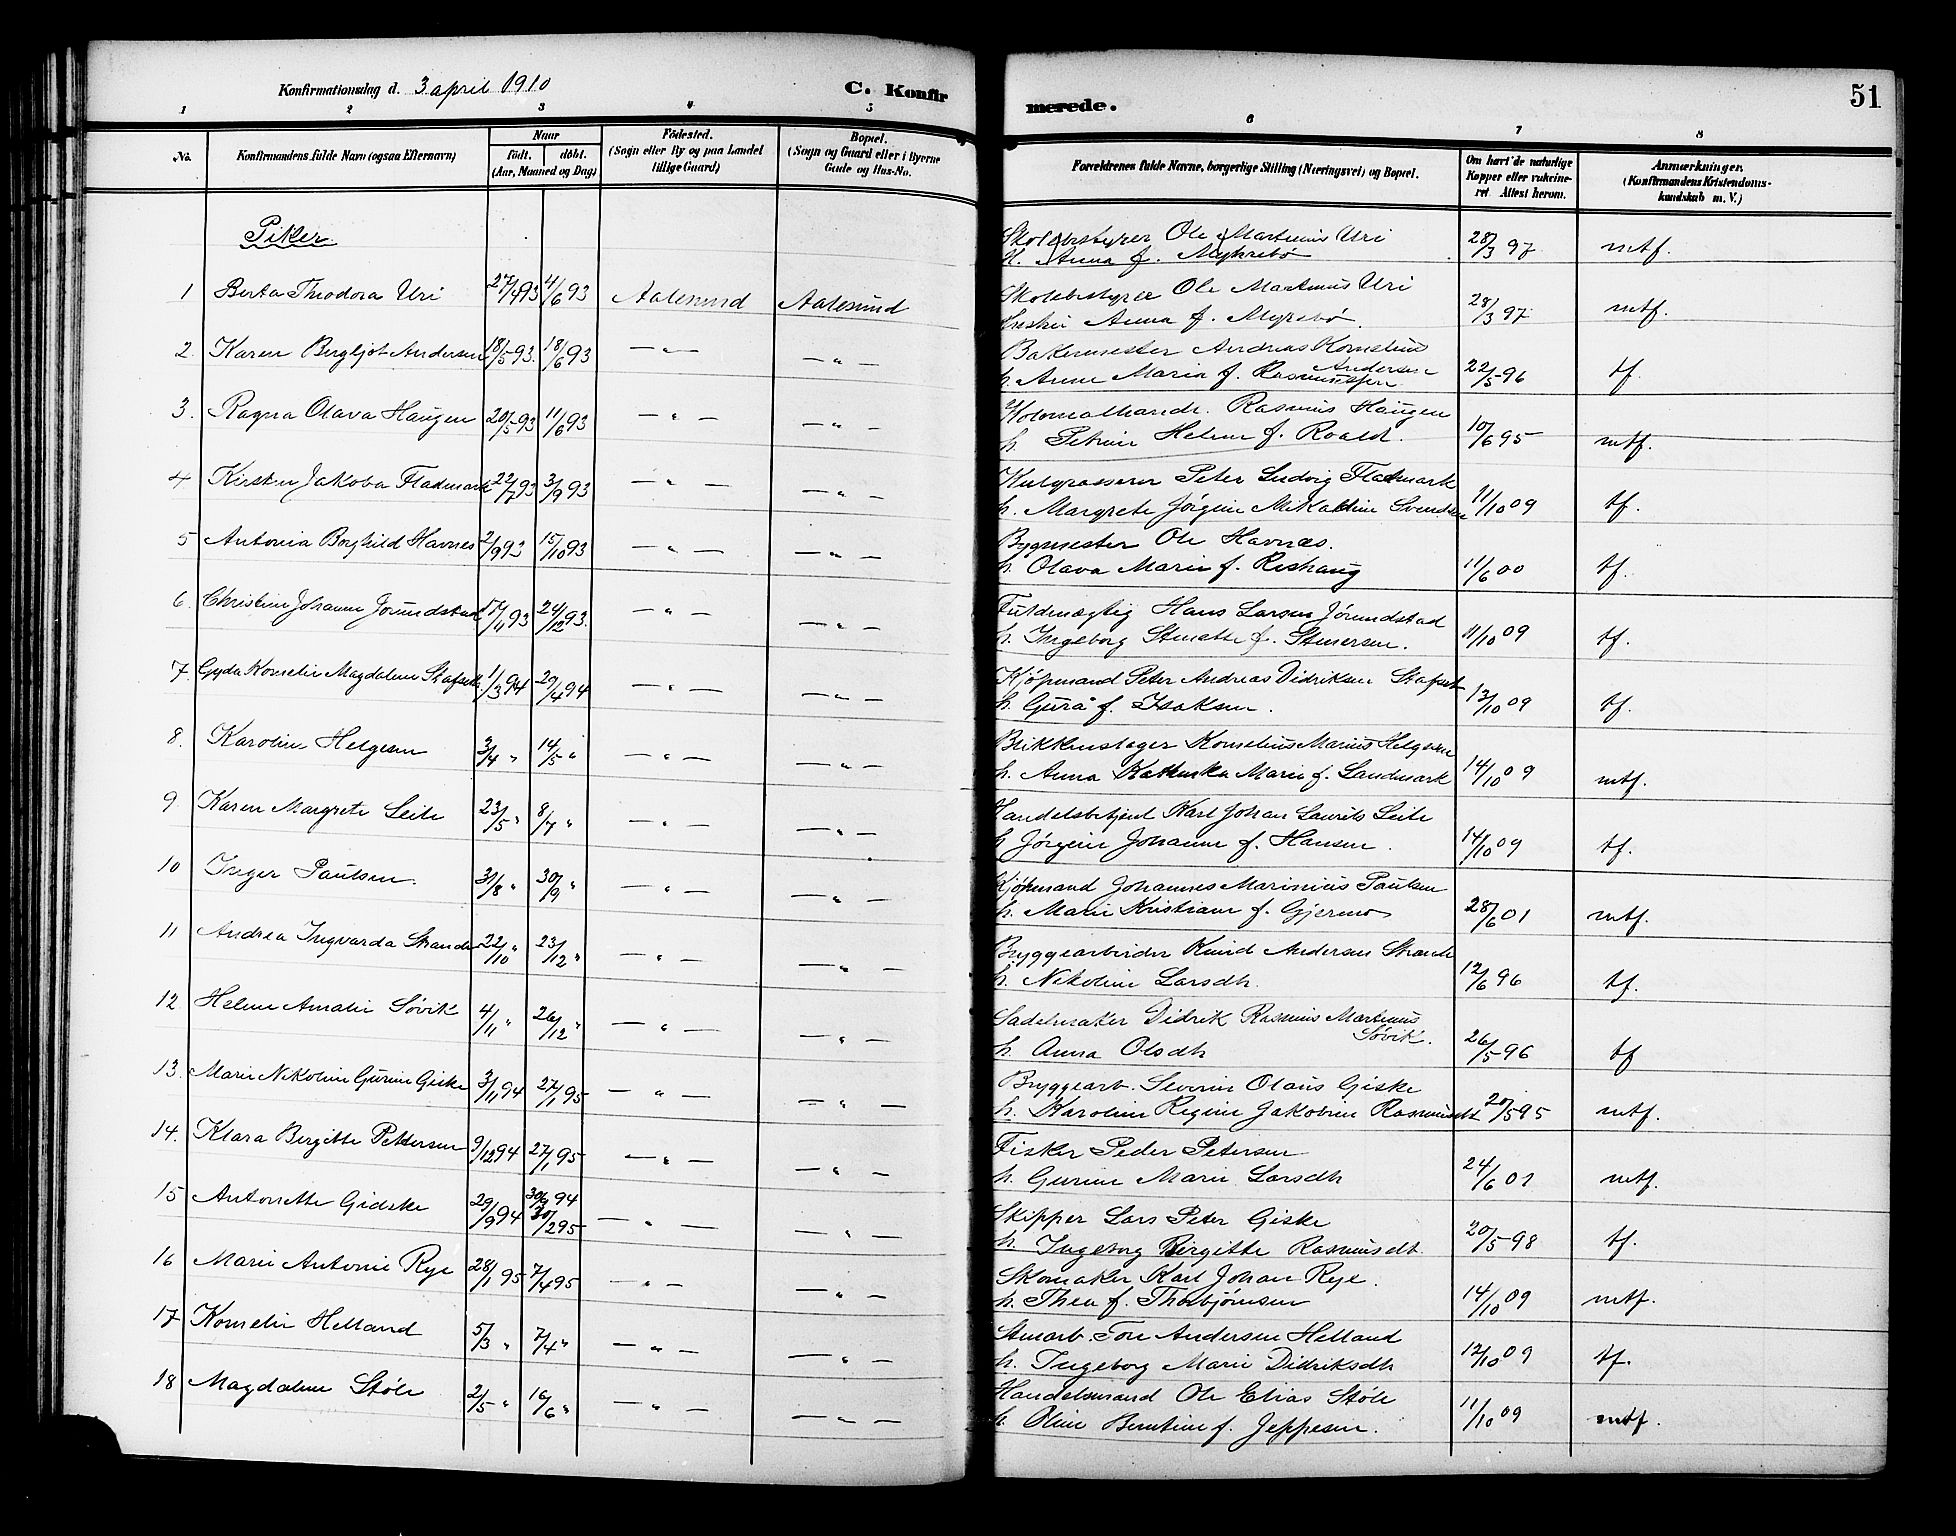 Konfirmationsdag d. 3 april 1910 C. Konfir merede. 51
1 2 3 4 5 6 7 8
No. Konfirmandens fulde Navn (ogsaa Efternavn) Naar født. døbt. (Aar, Maaned og Dag) Fødested. (Sogn eller By og paa Landet tillige Gaard) Bopæl. (Sogn og Gaard eller i Byerne Gade og Hus-No. Forældrenes fulde Navne, borgerlige Stilling (Næringsvei) og Bopæl. Om havt de naturlige Kopper eller vakcineret Attest herom. Anmærkninger. (Konfirmandens Kristendomskundskab m. V.)
Piker. Skolebestyrer Ole Martinus Uri 28/3 97 mtf.
H. Anna f. Myhrebø
1 Berta Theodora Uri 27/4 93 4/6 93 Aalesund Aalesund Skolebestyrer Ole Martinus Uri 28/3 97 mtf.
hustru Anna f. Myrebø.
2. Karen Bergljot Andersen 18/5 93. 18/6 93 — " — — " — Bakermester Andreas Kornelius Andersen 22/5 96 tf.
h. Anne Maria f. Rasmussen
3. Ragna Olava Haugen 20/5 93 11/6 93 — " — — " — Kolonialhandl. Rasmus Haugen 10/6 95 mtf.
h. Petrine Helene f. Roald.
4 Kirsten Jakoba Fladmark 22/7 93 3/9 93 — " — — " — Kulgrosserer Peter Ludvig Fladmark 11/10 09 tf.
h. Margrete Jørgine Mikaline Svendsen
5 Antonia Borghild Havnes 2/9 93 15/10 93 — " — — " — Bygmester Ole Havnæs. 11/6 00 tf.
h. Olava Marie f. Rishaug
6. Christine Johanne Jørundstad 17/11 93 24/12 93. — " — — " — Fuldmægtig Hans Larsen Jørundstad 11/10 09 tf.
h. Ingeborg Stinatte f. Stenersen.
7 Gyda Kornelie Magdalene Stafset 1/3 94 29/4 94 — " — — " — Kjøpmand Peter Andreas Didriksen Stafset 13/10 09 tf.
h. Gura f. Isaksen.
8. Karoline Helgesen 3/4 " 14/5 " — " — — " — Blikkenslager Kornelius Marius Helgesen 14/10 09 mtf.
h. Anna Kathinka Marie f. Landmark
9 Karen Margrete Leite 23/5 " 8/7 " — " — — " — Handelsbetjent Karl Johan Laurits Leite 14/10 09 tf.
h. Jørgine Johanne f. Hansen.
10 Inger Paulsen. 31/8 " 30/9 " — " — — " — Kjøpmand Johannes Marinius Paulsen 28/6 01 mtf.
h. Marie Kristiane f. Gjermo
11 Andrea Ingvarda Strande 22/10 " 23/12 " — " — — " — Bryggearbeider Knud Andersen Strande 12/6 96 tf.
h. Nikoline Larsdtr.
12 Helene Amalie Søvik 4/11 " 26/12 " — " — — " — Sadelmaker Didrik Rasmus Martinus Søvik. 26/5 96 tf
h. Anna Olsdtr
13. Marie Nikoline Gurine Giske 3/11 94 27/1 95 — " — — " — Bryggearb. Severin Olaus Giske 20/5 95 mtf.
h. Karoline Regine Jakobine Rasmusdt.
14. Klara Bergitte Pettersen 9/12 94 27/1 95 — " — — " — Fisker Peder Petersen 24/6 01 mtf.
h. Gurine Marie Larsdtr
15 Antonette Gidske 29/9 94 30/9 94 30/2 95 — " — — " — Skipper Lars Peter Giske 20/5 98 tf.
h. Ingeborg Birgitte Rasmusdt.
16 Marie Antonie Rye 28/1 95 7/4 95 — " — — " — Skomaker Karl Johan Rye. 14/10 09 mtf.
h. Thea f. Thorbjørnsen
17 Kornelie Helland 5/3 " 7/4 " — " — — " — Stenarb. Tore Andersen Helland 12/10 09 tf.
h. Ingeborg Marie Didriksdtr
18 Magdalene Støle 2/5 " 16/6 " — " — — " — Handelsmand Ole Elias Støle 11/10 09 mtf.
h. Oline Berntine f. Jeppesen.